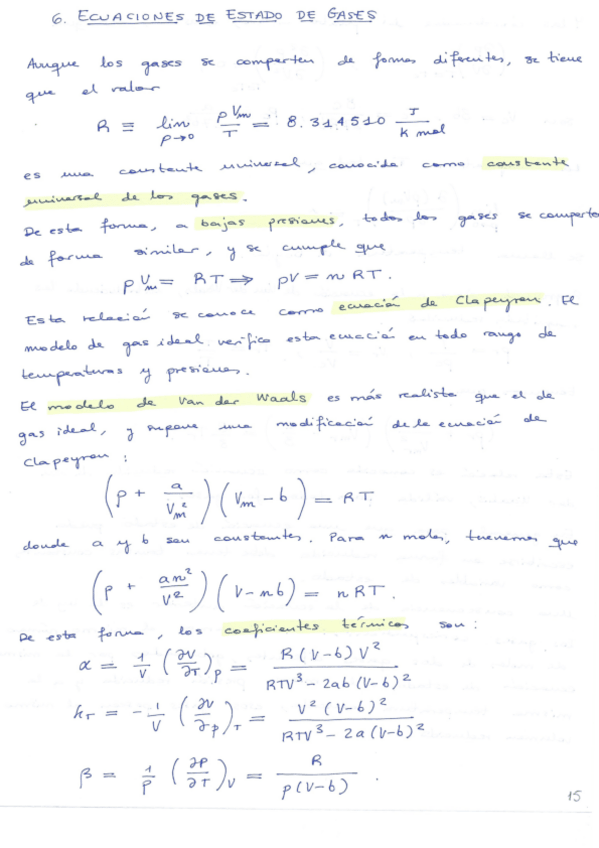 6. ECUACIONES DE ESTADO DE GASES
Aunque los gases se comparten de formas diferentes, se tiene
que el valor
R ≡ lim p→0 pVm/T = 8.314510 J/(K mol)
es una constante universal, conocida como constante
universal de los gases.
De esta forma, a bajas presiones, todos los gases se comporta
de forma similar, y se cumple que
pVm = RT ⇒ pV = nRT.
Esta relación se conoce como ecuación de Clapeyron. El
modelo de gas ideal verifica esta ecuación en todo rango de
temperaturas y presiones.
El modelo de Van der Waals es más realista que el de
gas ideal, y supone una modificación de la ecuación de
Clapeyron:
(p + a/Vm²)(Vm − b) = RT
donde a y b son constantes. Para n moles, tenemos que
(p + an²/V²)(V − nb) = nRT.
De esta forma, los coeficientes térmicos son:
α = 1/V (∂V/∂T)p = R(V−b)V² / (RTV³ − 2ab(V−b)²)
kT = −1/V (∂V/∂p)T = V²(V−b)² / (RTV³ − 2a(V−b)²)
β = 1/p (∂P/∂T)V = R / (p(V−b)).
15